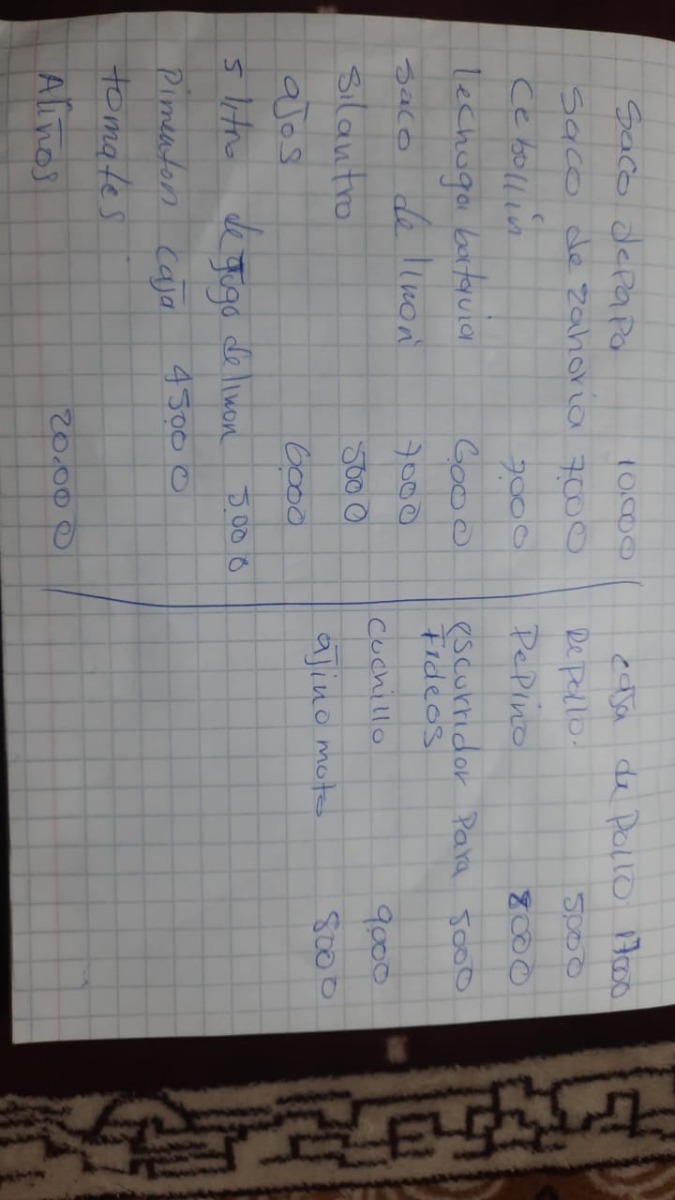 Saco de papa 10.000
Saco de zahoria 7.000
Cebollin 7.000
lechuga batavia 6.000
Saco de limon 7000
Silantro 5000
ajos 6.000
5 litro de jugo de limon 5.000
Pimenton caja 45000
tomates
Aliños 20.000
caja de pollo 17000
Repollo. 5.000
Pepino 8000
escurridor para 5000
fideos
cuchillo 9.000
ajinomoto 8000